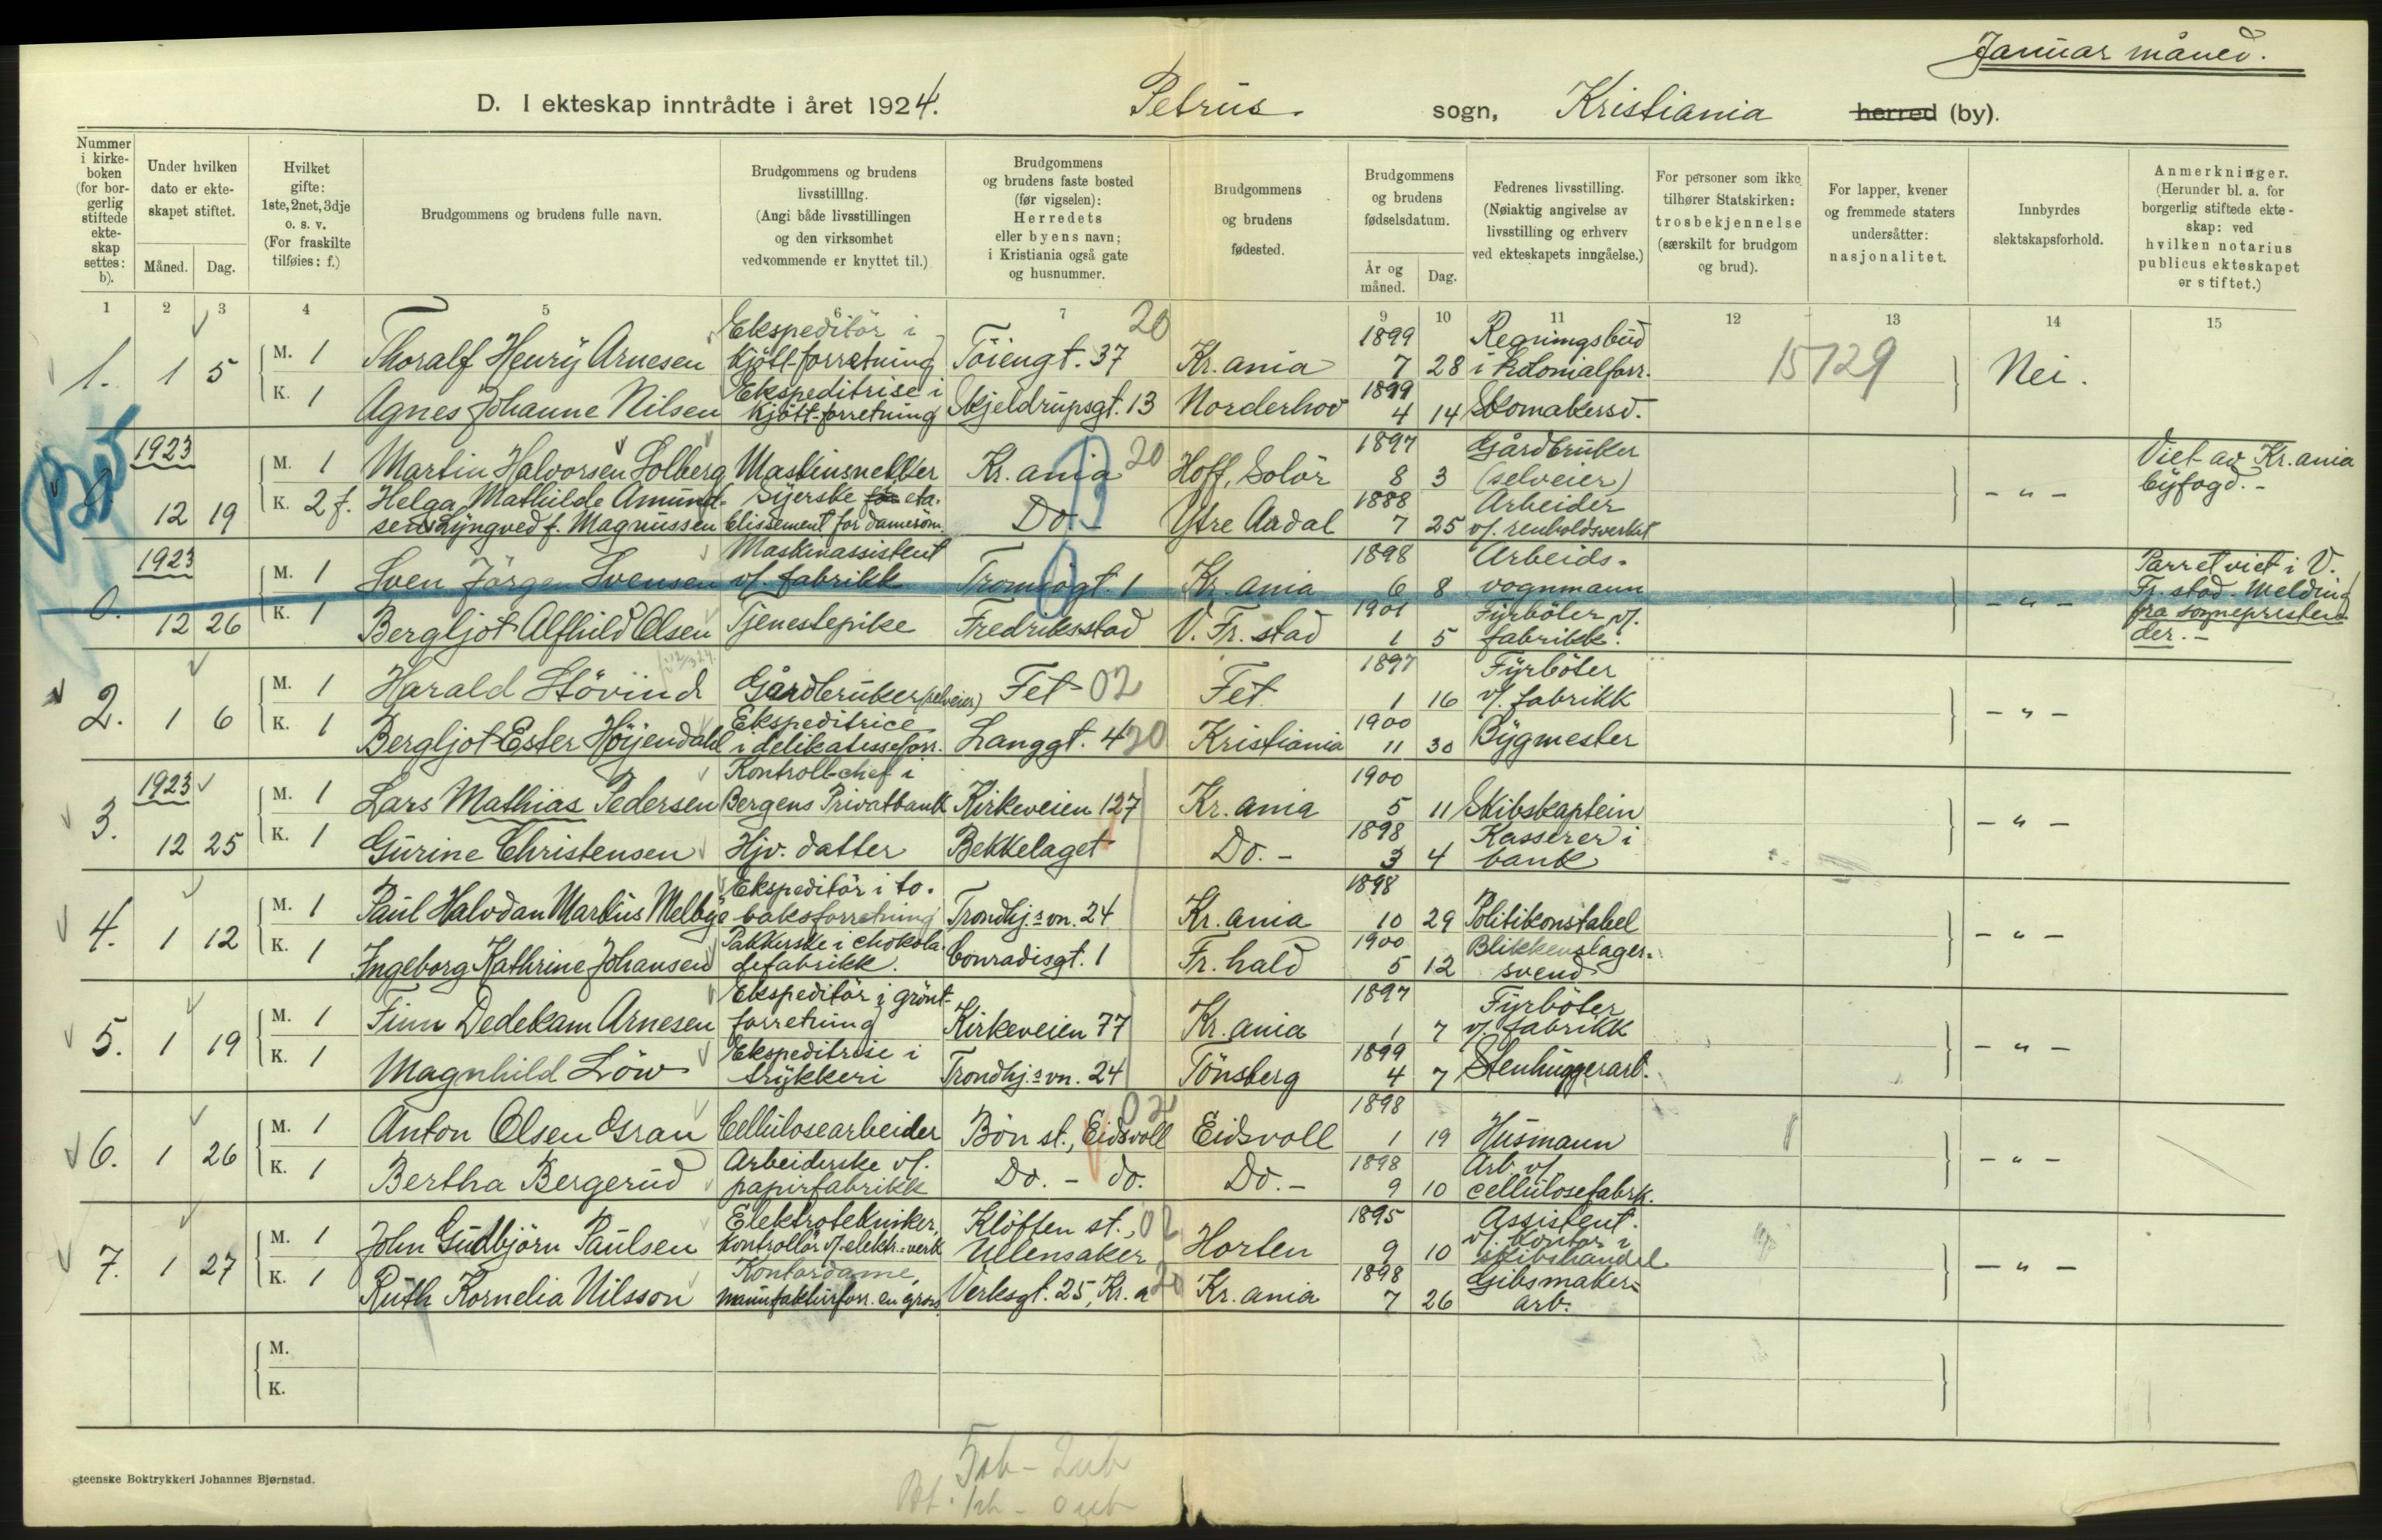 Januar måned.
D. I ekteskap inntrådte i året 1924. Petrus. sogn, Kristiania herred (by).
Nummer i kirke-boken (for bor-gerlig stiftede ekte-skap settes: b).
Under hvilken dato er ekte-skapet stiftet.
Måned. Dag.
Hvilket gifte: 1ste, 2net, 3dje o. s. v. (For fraskilte tilføies: f.)
Brudgommens og brudens fulle navn.
Brudgommens og brudens livsstilllng. (Angi både livsstillingen og den virksomhet vedkommende er knyttet til.)
Brudgommens og brudens faste bosted (før vigselen): Herredets eller byens navn; i Kristiania også gate og husnummer.
Brudgommens og brudens fødested.
Brudgommens og brudens fødselsdatum.
År og måned. Dag.
Fedrenes livsstilling. (Nøiaktig angivelse av livsstilling og erhverv ved ekteskapets inngåelse.)
For personer som ikke tilhører Statskirken: trosbekjennelse (særskilt for brudgom og brud).
For lapper, kvener og fremmede staters undersåtter: nasjonalitet.
Innbyrdes slektskapsforhold.
Anmerkninger. (Herunder bl. a. for borgerlig stiftede ekte-skap: ved hvilken notarius publicus ekteskapet er stiftet.)
1 2 3 4 5 6 7 9 10 11 12 13 14 15
1. 1 5 M. 1 Thoralf Henry Arnesen Ekspeditör i kjött-forretning Töiengt. 37 20 Kr.ania 1899 7 28 Regningsbud i kolonialforr. 15729 Nei.
K. 1 Agnes Johanne Nilsen Ekspeditrise i kjött-forretning Skjeldrupsgt. 13 Norderhov 1899 4 14 Skomakersv.
1923 12 19 M. 1 Martin Halvorsen Solberg Maskinsnekker Kr.ania 20 Hoff, Solör 1897 8 3 Gårdbruker (selveier) - " - Viet av Kr.ania byfogd. -
K. 2 f. Helga Mathilde Amund-sen Lyngved f. Magnussen Syerske eta-blissement for damesöm Do. - Ytre Aadal 1888 7 25 Arbeider v/. renholdsverket
0. 1923 12 26 M. 1 Sven Jörgen Svensen Maskinassistent v/. fabrikk Tromsögt. 1 Kr.ania 1898 6 8 Arbeids-vognmann - " - Parret viet i V. Fr.stad. Melding fra sognepresten der. -
K. 1 Bergljot Alfhild Olsen Tjenestepike Fredriksstad V. Fr.stad 1901 1 5 Fyrböter v/. fabrikk.
2. 1 6 M. 1 Harald Stövind Gårdbruker (selveier) Fet 02 Fet 1897 1 16 Fyrböter v/. fabrikk - " -
K. 1 Bergljot Ester Höyendahl Ekspeditrice i delikatesseforr. Langgt. 4 20 Kristiania 1900 11 30 Bygmester
3. 1923 12 25 M. 1 Lars Mathias Pedersen Kontrollchef i Bergens Privatbank Kirkeveien 127 Kr.ania 1900 5 11 Skibskaptein - " -
K. 1 Gurine Christensen Hjv. datter Bekkelaget Do. - 1898 3 4 Kasserer i bank
4. 1 12 M. 1 Paul Halvdan Markus Melbye Ekspeditör i to-baksforretning Trondhj.svn. 24 Kr.ania 1898 10 29 Politikonstabel - " -
K. 1 Ingeborg Kathrine Johansen Pakkerske i chokola-defabrikk. Conradisgt. 1 Fr.hald 1900 5 12 Blikkenslager-svend
5. 1 19 M. 1 Finn Dedekam Arnesen Ekspeditör i grönt-forretning Kirkeveien 77 Kr.ania 1897 1 7 Fyrböter v/. fabrikk - " -
K. 1 Magnhild Löw Ekspeditrise i trykkeri Trondhj.svn. 24 Tönsberg 1899 4 7 Stenhuggerarb.
6. 1 26 M. 1 Anton Olsen Osran Cellulosearbeider Bön st., Eidsvoll 02 Eidsvoll 1898 1 19 Husmann - " -
K. 1 Bertha Bergerud Arbeiderske v/. papirfabrikk Do. - do. Do. - 1898 9 10 Arb. v/ cellulosefabrk.
7. 1 27 M. 1 John Gudbjörn Paulsen Elektrotekniker, kontrollör v/. elektr.-verk Klöften st., 02 Ullensaker Horten 1895 9 10 Assistent v/. kontor i skibshandel - " -
K. 1 Ruth Kornelia Nilsson Kontordame, manufakturforr. en gros Verksgt. 25, Kr.a 20 Kr.ania 1898 7 26 Gibsmaker-arb.
M.
K.
gteenske Boktrykkeri Johannes Bjørnstad.